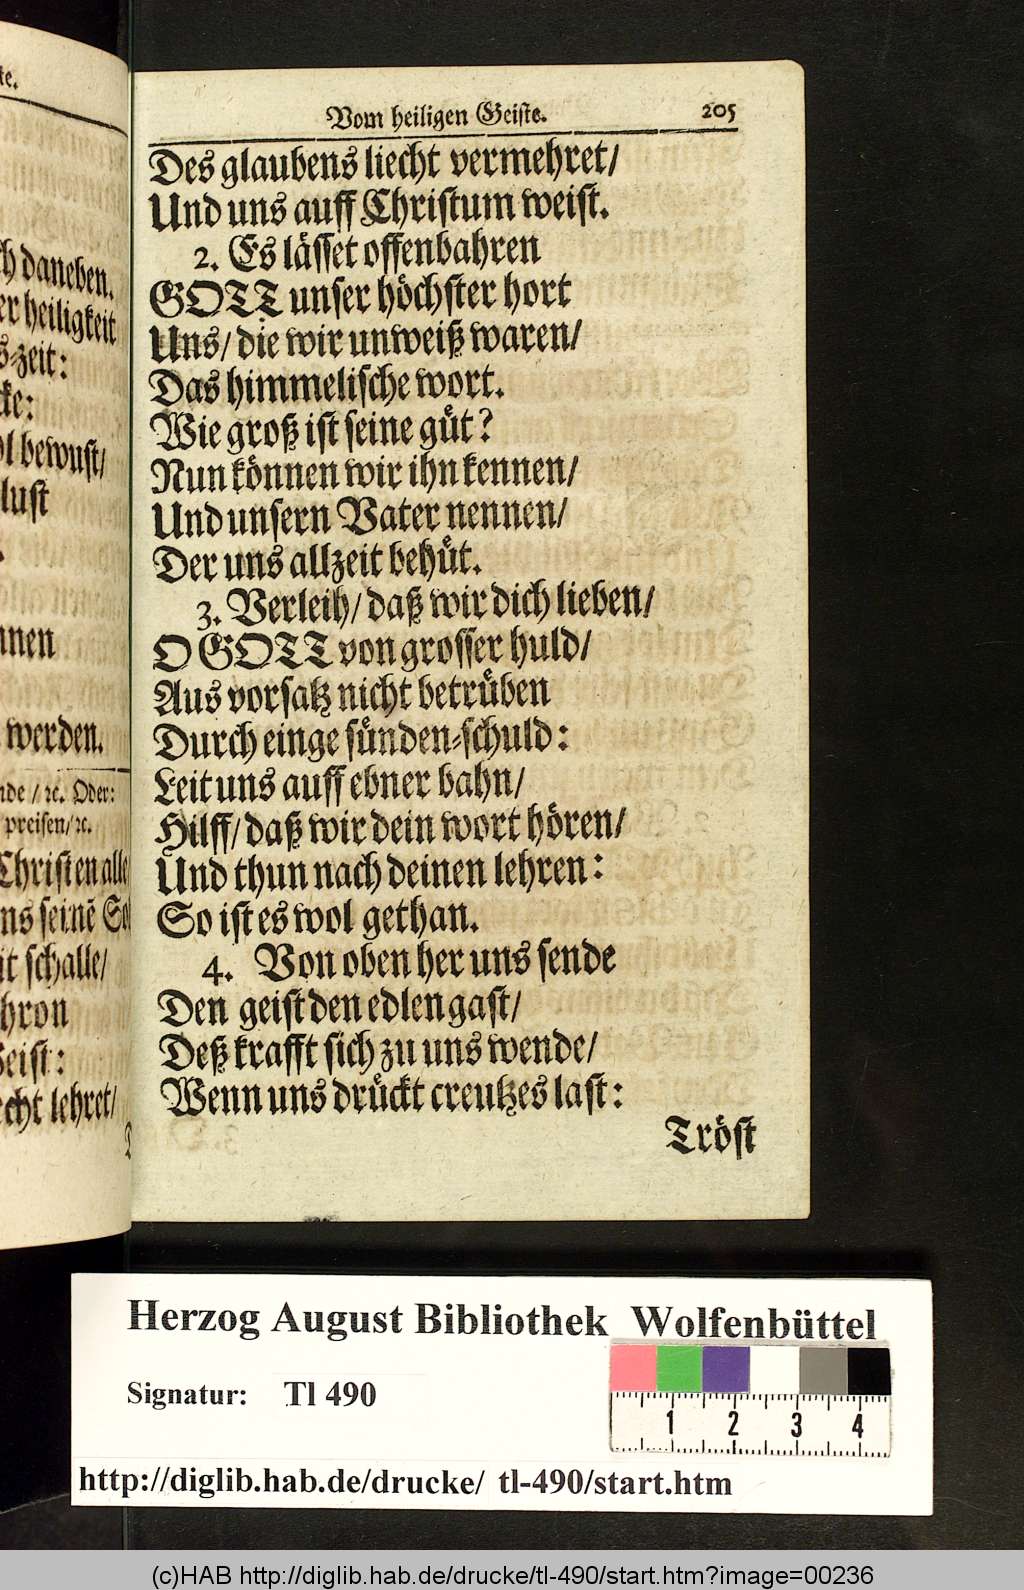 ke.
ch daneben.
er heiligkeit
s-zeit:
cke:
ol bewust/
lust
nnen
werden.
nde / ꝛc. Oder:
preisen/ ꝛc.
Christen alle
ns seinē So
it schalle/
hron
Geist:
echt lehret/
Vom heiligen Geiste. 205
Des glaubens liecht vermehret/
Und uns auff Christum weist.
2. Es lässet offenbahren
GOTT unser höchster hort
Uns/ die wir unweiß waren/
Das himmelische wort.
Wie groß ist seine güt?
Nun können wir ihn kennen/
Und unsern Vater nennen/
Der uns allzeit behüt.
3. Verleih/ daß wir dich lieben/
O GOTT von grosser huld/
Aus vorsatz nicht betrüben
Durch einge sünden-schuld:
Leit uns auff ebner bahn/
Hilff/ daß wir dein wort hören/
Und thun nach deinen lehren:
So ist es wol gethan.
4. Von oben her uns sende
Den geist den edlen gast/
Deß krafft sich zu uns wende/
Wenn uns drückt creutzes last:
Tröst
Herzog August Bibliothek Wolfenbüttel
Signatur: Tl 490
1 2 3 4
http://diglib.hab.de/drucke/ tl-490/start.htm
(c)HAB http://diglib.hab.de/drucke/tl-490/start.htm?image=00236